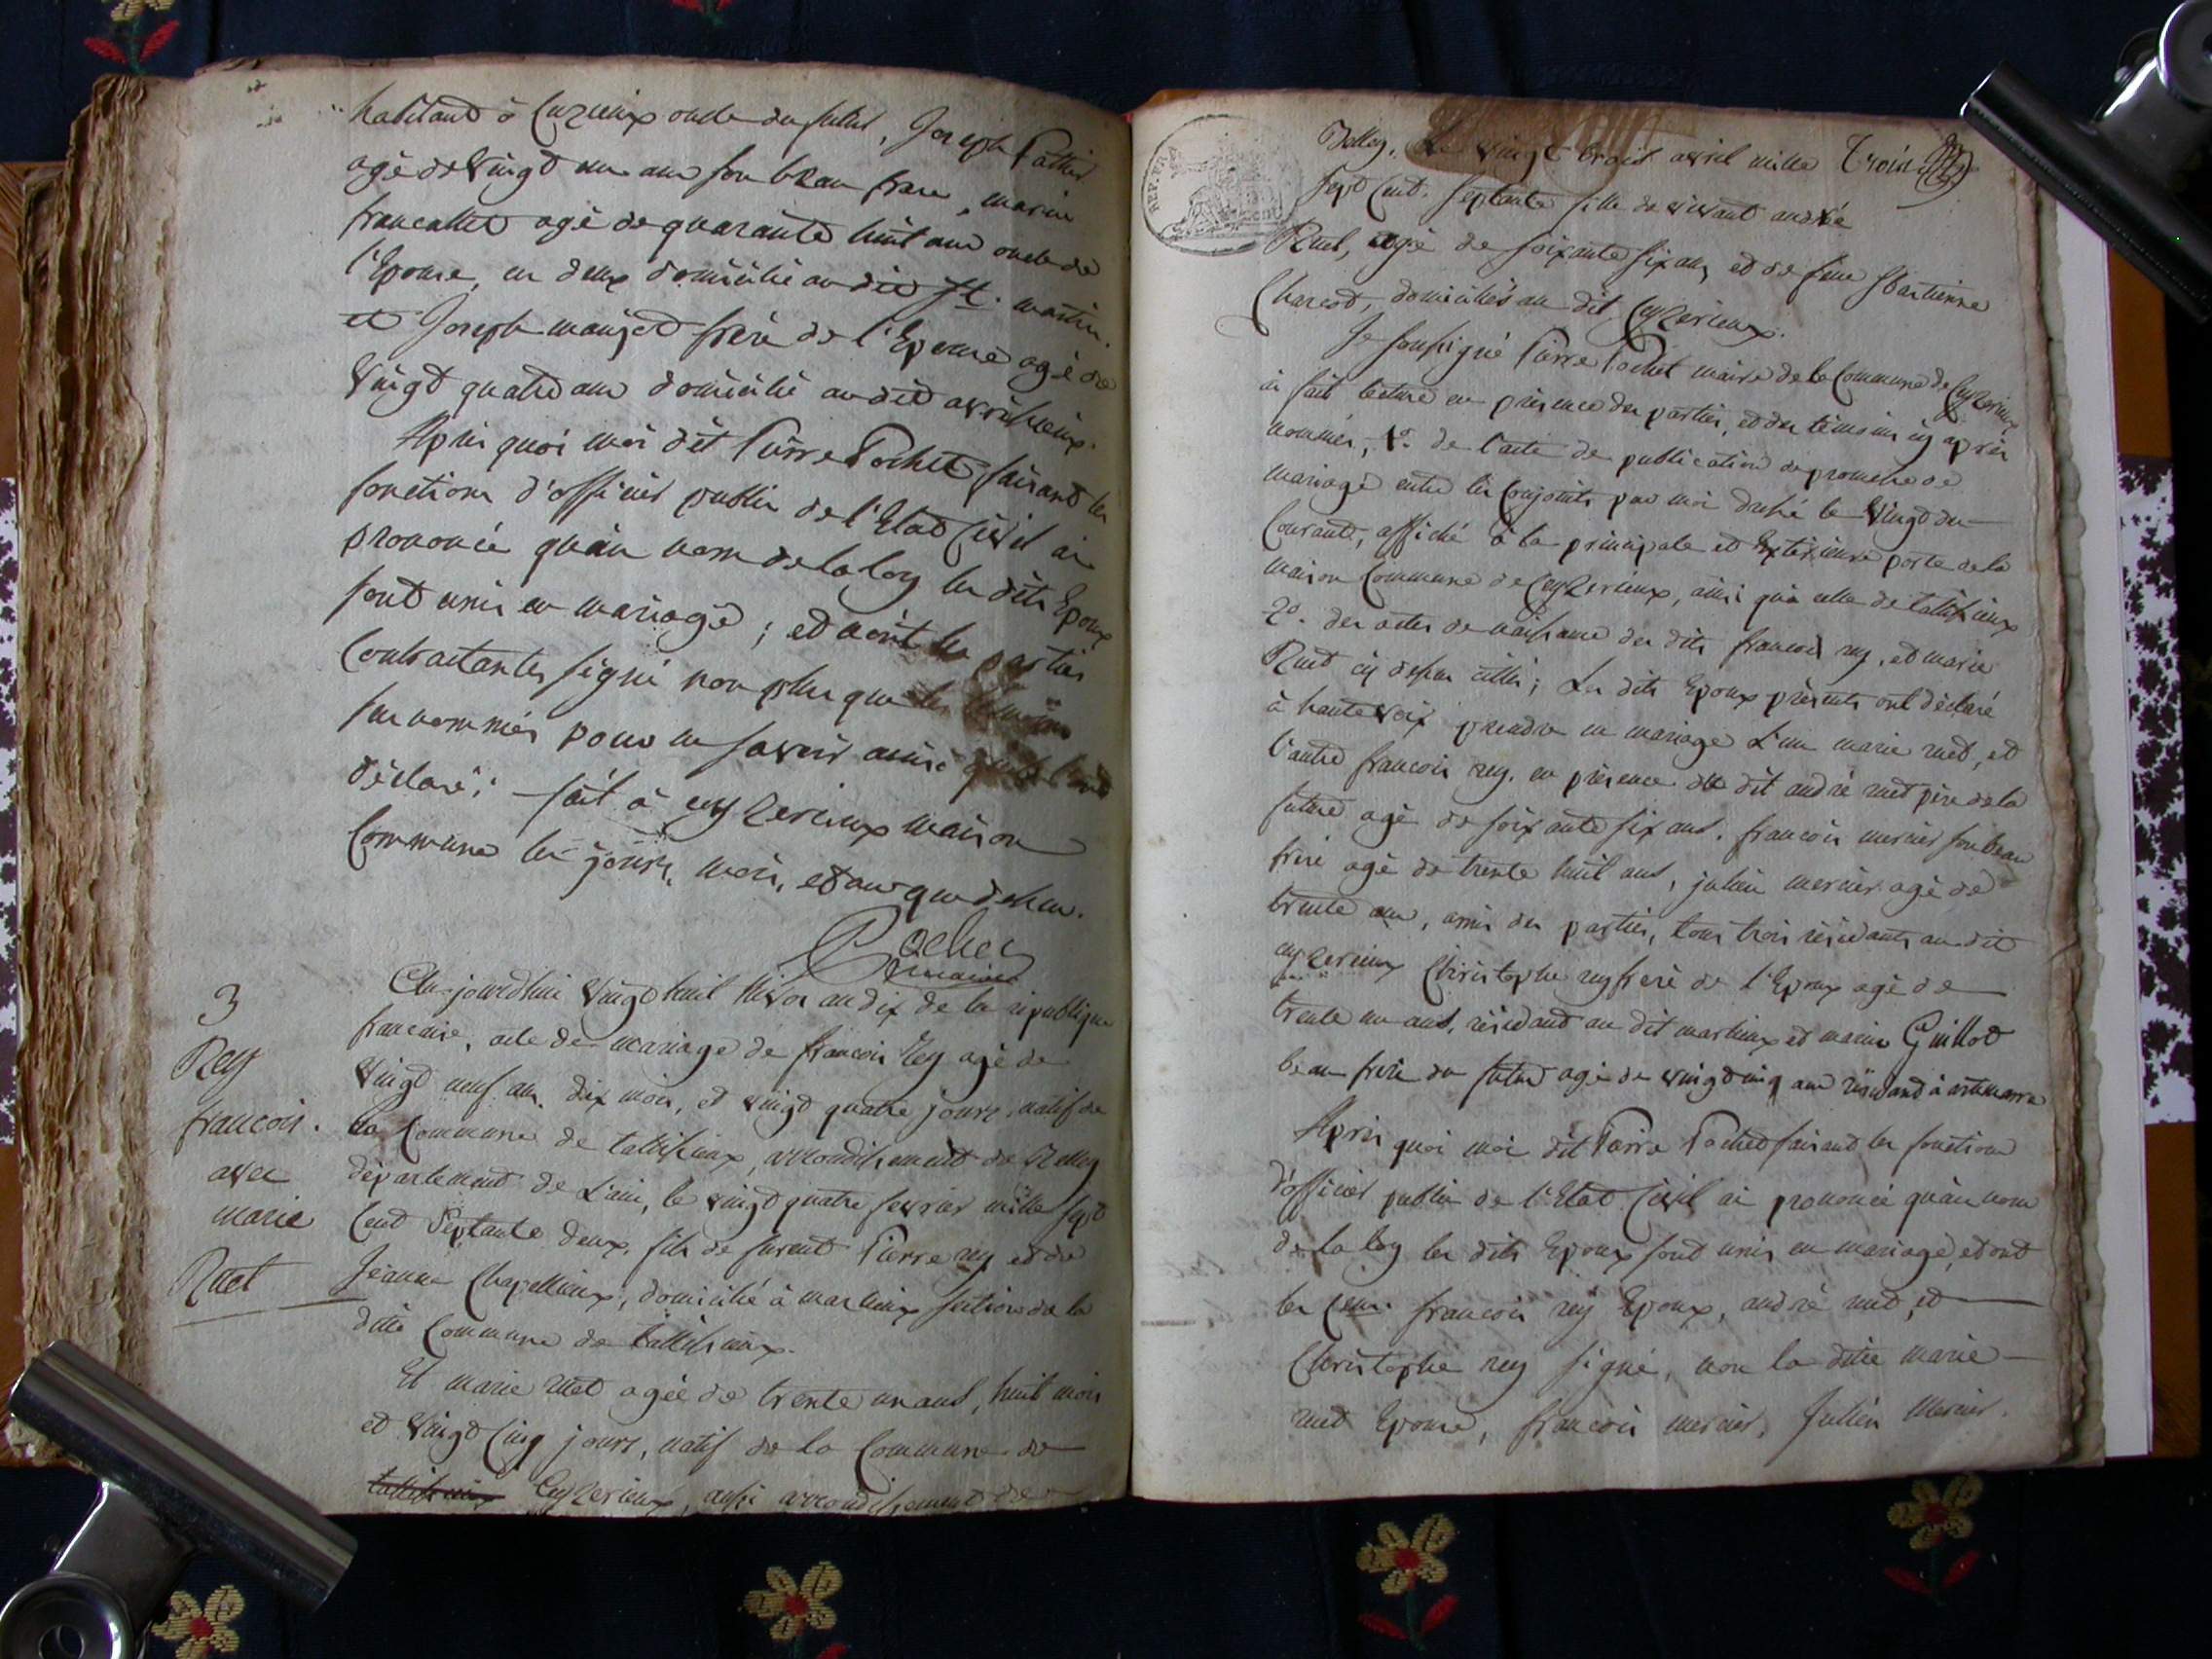 habitant à Cuzieux oncle du futur, Joseph Pattier
agé de Vingt un ans son beau frere, marin
francallet agé de quarante huit ans oncle de
l'Epouse, en deux domicilié au dit St. martin.
et Joseph manjot frère de l'Epouse agé de
Vingt quatre ans domicilié au dit avrissieux.
Après quoi moi dit Pierre Pochet faisant les
fonctions d'officier public de l'Etat Civil ai
prononcé qu'au nom de la loy les dits Epoux
sont unis en mariage ; et n'ont les parties
Contractantes signé non plus que les témoins
sus nommés pour ne savoir ainsi
déclaré ; fait à ceyzerieux maison
Commune les jours, mois, et an que dessus.
Pochet
maire
3
Rey
francois.
avec
marie
Ruet
Au-jourd'hui Vingt huit Nivos an dix de la république
francaise, acte de mariage de francois Rey agé de
Vingt neuf ans, dix mois, et vingt quatre jours, natif de
la Commune de tallissieux, arrondissement de Belley
département de L'ain, le vingt quatre fevrier mille sept
Cent Septante deux, fils de furent Pierre rey et de
Jeanne Chapellieux, domicilié à marlieux section de la
ditte Commune de tallissieux.
Et marie ruet agée de trente un ans, huit mois
et Vingt Cinq jours, natif de la Commune de
tallissieux Ceyzerieux, aussi arrondissement de
Belley, Le vingt trois avril mille Trois
Sept Cent. Septante fille de vivant andré
Ruet, agé de soixante six ans, et de feue Sbastienne
Charcot, domiciliés au dit Ceyzerieux.
Je soussigné Pierre Pochet maire de la Commune de Ceyzerieux
ai fait lecture en présence des parties, et des témoins cy après
nommés, 1o. de l'acte de publication de promesse de
mariage entre les Conjoints par moi dressé le Vingt du
Courant, affiché à la principale et Extérieure porte de la
maison Commune de Ceyzerieux, ainsi qu'à celle de tallissieux
2o. des actes de naissance des dits francois rey, et marie
Ruet cy dessus cittés ; Les dits Epoux présents ont déclaré
à haute voix prendre en mariage L'un marie ruet, et
l'autre francois rey. en présence du dit andré ruet père de la
future agé de soixante six ans. francois mercier son beau
frere agé de trente huit ans, julien mercier agé de
trente ans, amis des parties, tous trois résidants au dit
ceyzerieux Christophe rey frere de l'Epoux agé de
trente un ans, résidant au dit marlieux et marin Guillot
beau frere du futur agé de vingt cinq ans résidant à artemarre
Après quoi moi dit Pierre Pochet faisant les fonctions
d'officier public de l'Etat Civil ai prononcé qu'au nom
de la loy les dits Epoux sont unis en mariage, et ont
les Cens. francois rey Epoux, andré ruet, et
Christophe rey signé, non la ditte marie
ruet Epouse, francois mercier, Jullien Mercier.